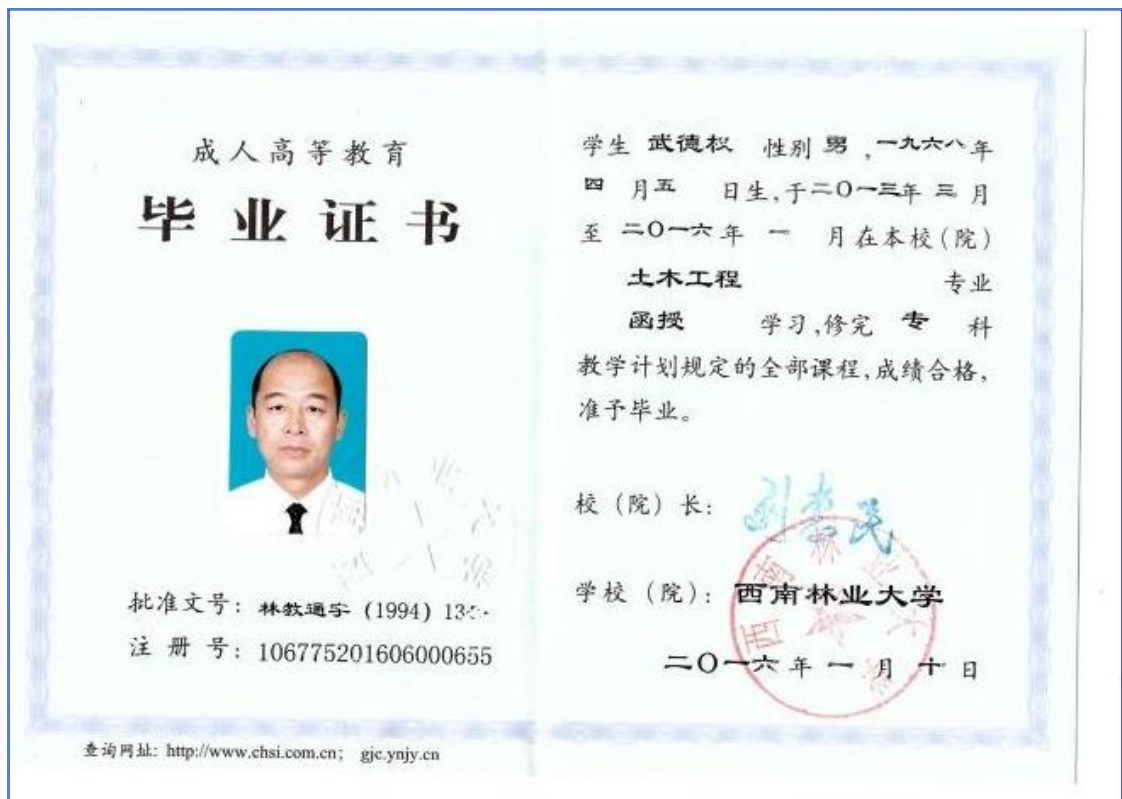 成人高等教育
毕业证书
批准文号：林教通字（1994）13
注 册 号：106775201606000655
查询网址：http://www.chsi.com.cn； gjc.ynjy.cn
学生 武德权 性别 男，一九六八年
四 月 五 日生，于二〇一三年 三 月
至 二〇一六 年 一 月在本校（院）
土木工程 专业
函授 学习，修完 专 科
教学计划规定的全部课程，成绩合格，
准予毕业。
校（院）长：
学校（院）：西南林业大学
二〇一六 年 一 月 十 日
西南林业大学